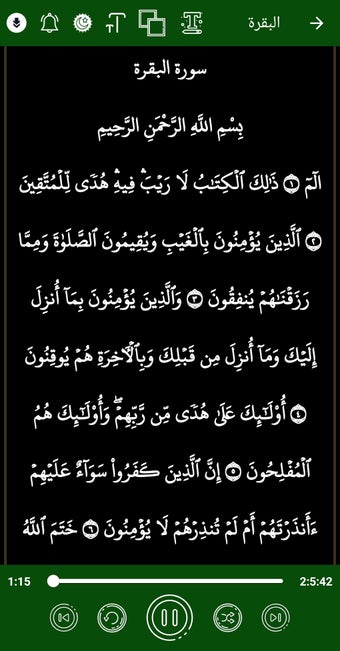 البقرة
سورة البقرة
بِسْمِ اللَّهِ الرَّحْمَنِ الرَّحِيمِ
الٓمٓ ۝١ ذَٰلِكَ ٱلْكِتَـٰبُ لَا رَيْبَ ۛ فِيهِ ۛ هُدًى لِّلْمُتَّقِينَ
۝٢ ٱلَّذِينَ يُؤْمِنُونَ بِٱلْغَيْبِ وَيُقِيمُونَ ٱلصَّلَوٰةَ وَمِمَّا
رَزَقْنَـٰهُمْ يُنفِقُونَ ۝٣ وَٱلَّذِينَ يُؤْمِنُونَ بِمَآ أُنزِلَ
إِلَيْكَ وَمَآ أُنزِلَ مِن قَبْلِكَ وَبِٱلْـَٔاخِرَةِ هُمْ يُوقِنُونَ
۝٤ أُو۟لَـٰٓئِكَ عَلَىٰ هُدًى مِّن رَّبِّهِمْ ۖ وَأُو۟لَـٰٓئِكَ هُمُ
ٱلْمُفْلِحُونَ ۝٥ إِنَّ ٱلَّذِينَ كَفَرُوا۟ سَوَآءٌ عَلَيْهِمْ
ءَأَنذَرْتَهُمْ أَمْ لَمْ تُنذِرْهُمْ لَا يُؤْمِنُونَ ۝٦ خَتَمَ ٱللَّهُ
1:15 2:5:42